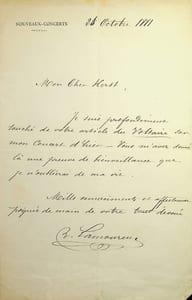 NOUVEAUX-CONCERTS
24 Octobre 1881
Mon Cher Kerst
Je suis profondément
touché de votre article du Voltaire sur
mon Concert d'hier — Vous m'avez donné
là une preuve de bienveillance que
je n'oublierai de ma vie.
Mille remerciements et affectueuse
poignée de main de votre tout dévoué
C. Lamoureux